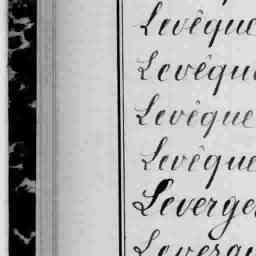 Levêque
Levêque
Levêque
Levêque
Leverge